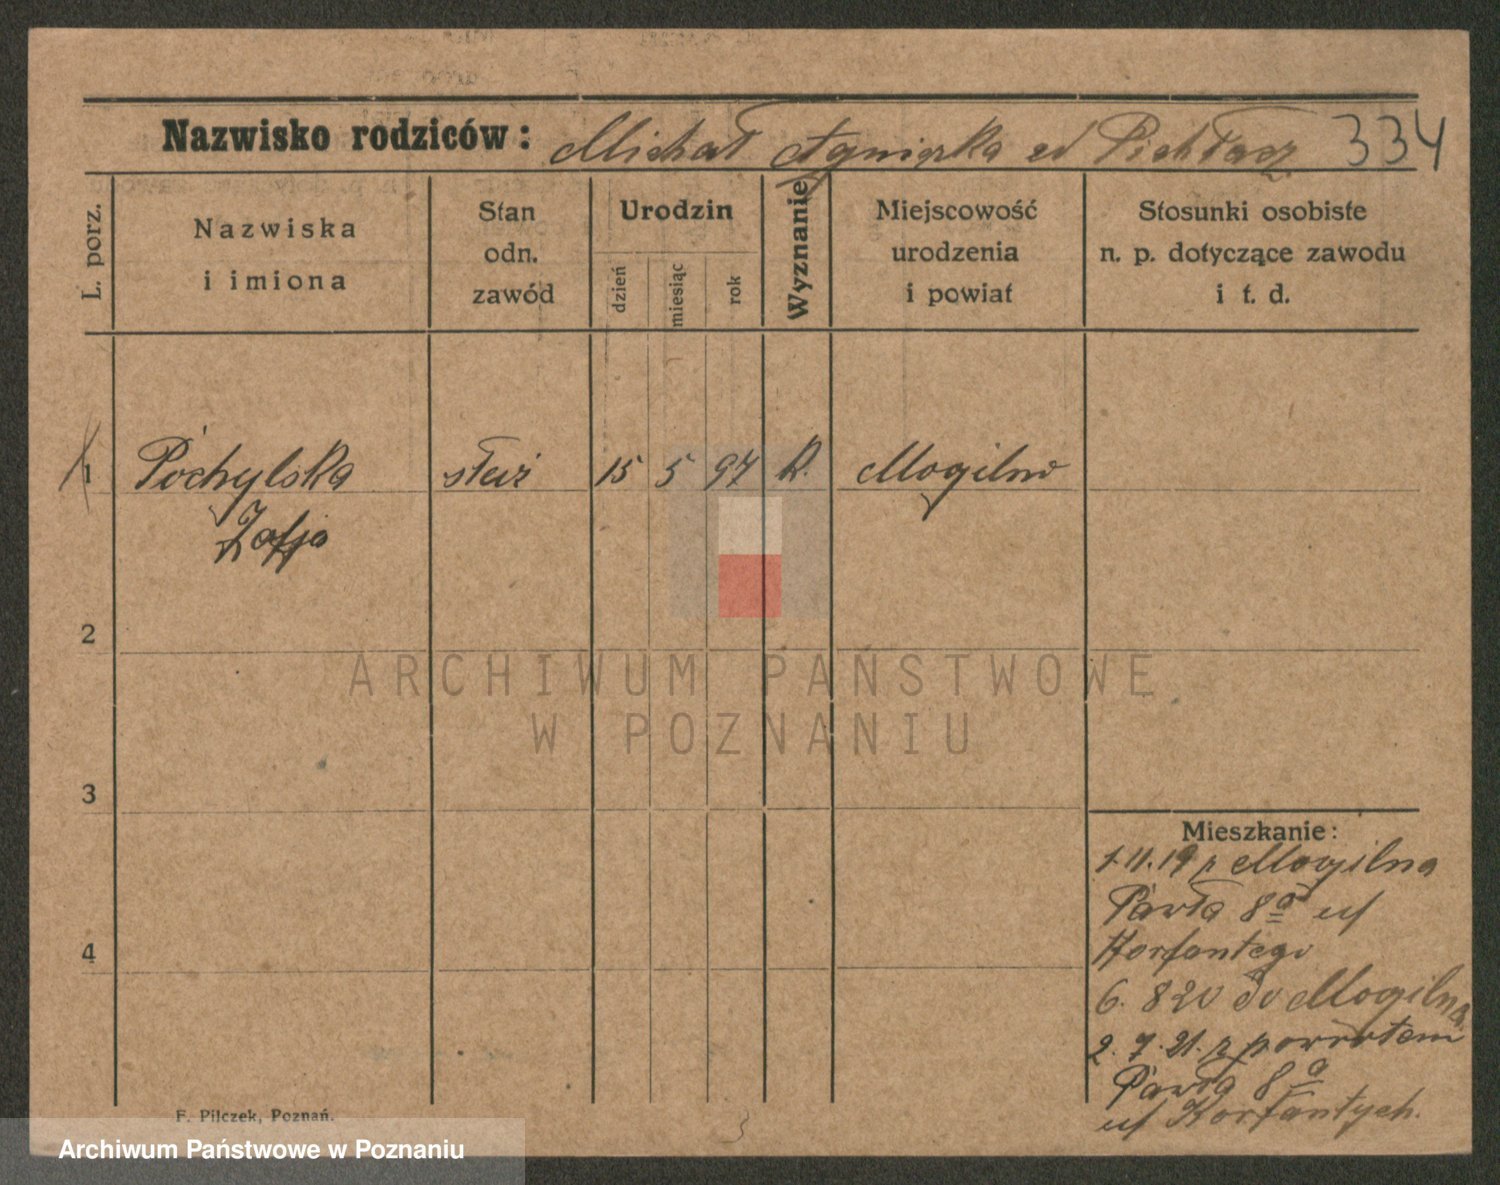 Nazwisko rodziców: Michał Agnieszka 334
L. porz.
Nazwiska i imiona
Stan odn. zawód
Urodzin
dzień
miesiąc
rok
Wyznanie
Miejscowość urodzenia i powiat
Stosunki osobiste n. p. dotyczące zawodu i t. d.
1 Pochylska służ 15 5 97 k. Mogilno
Zofja
2
ARCHIWUM PAŃSTWOWE
W POZNANIU
3
Mieszkanie:
1.11.19 z Mogilna
Pawła 8a u/
Korfantego
4
6. 8 20 do Mogilna
2. 7. 21. z powrotem
Pawła 8a
u/ Korfantych.
F. Pilczek, Poznań.
3
Archiwum Państwowe w Poznaniu